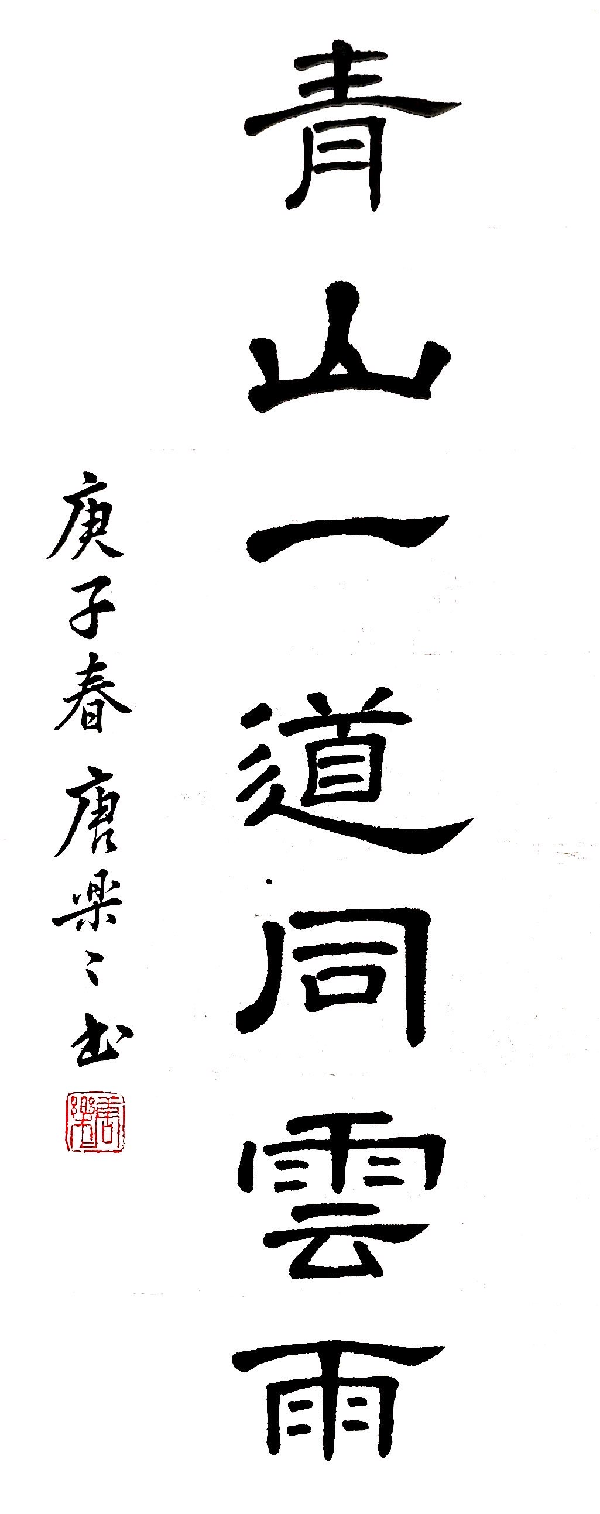 青山一道同雲雨
庚子春唐樂〻书
唐樂